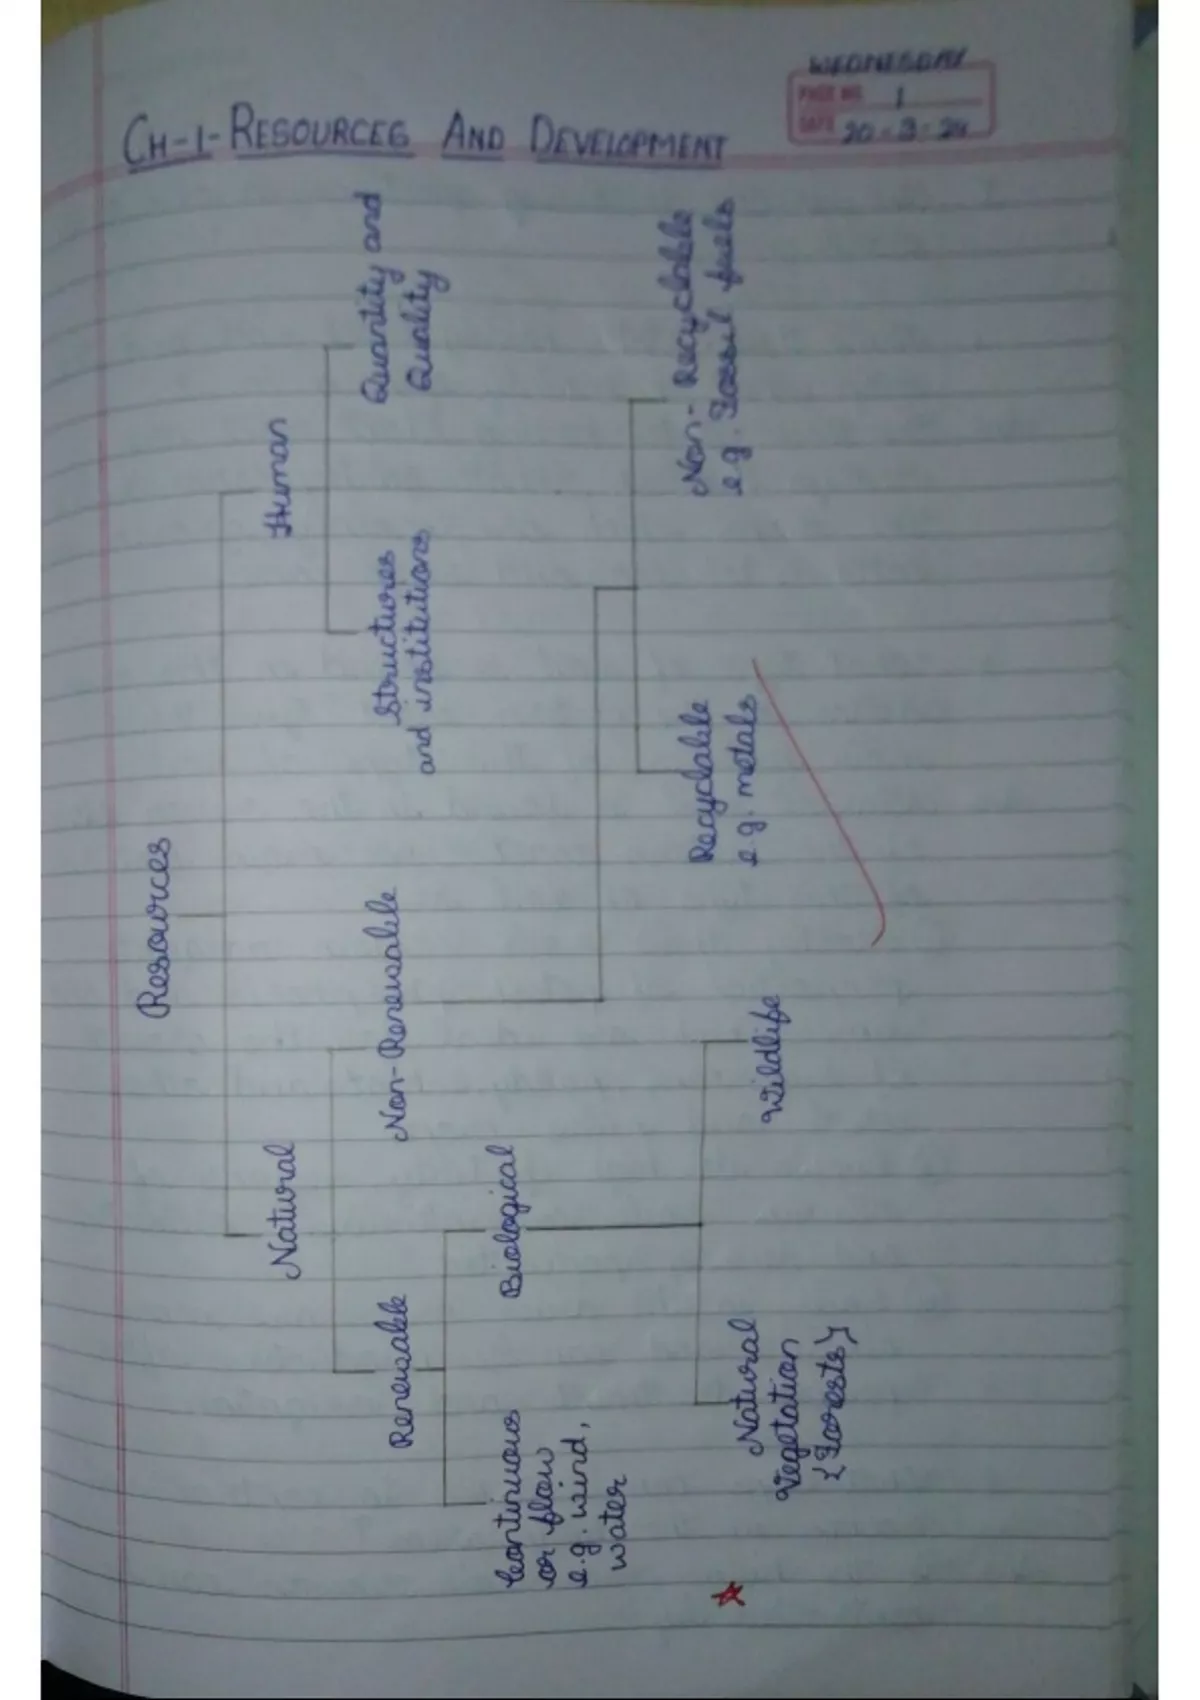 WEDNESDAY
PAGE NO. 1
DATE 20-3-24
CH-1-RESOURCES AND DEVELOPMENT
Resources
Natural
Human
Renewable
Non-Renewable
Structures
and institutions
Quantity and
Quality
Continuous
or flow
e.g. wind,
water
Biological
Recyclable
e.g. metals
Non-Recyclable
e.g. Fossil fuels
Natural
Vegetation
{Forests}
Wildlife